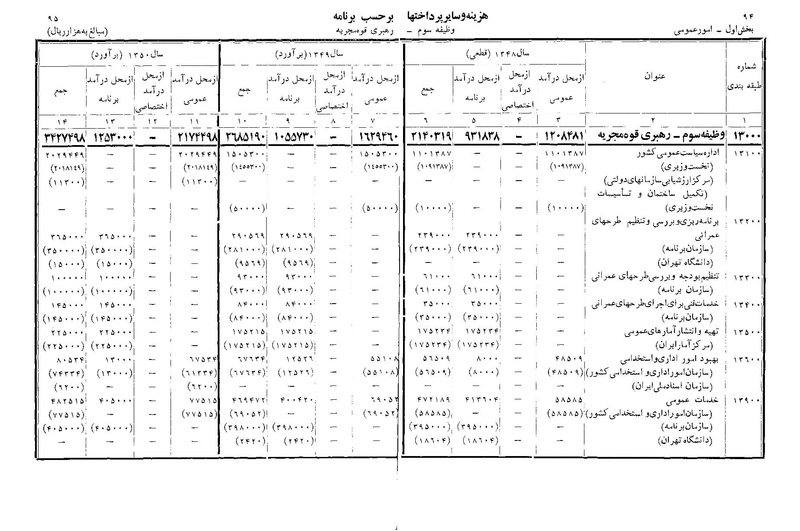 ۹۴
هزینه‌وسایرپرداختها برحسب برنامه
۹۵
بخش‌اول ـ امورعمومی
وظیفه سوم ـ رهبری قوه‌مجریه
(مبالغ به‌هزارریال)
شماره طبقه بندی
عنوان
سال ۱۳۴۸ (قطعی)
سال ۱۳۴۹ (برآورد)
سال ۱۳۵۰ (برآورد)
ازمحل درآمد عمومی | ازمحل درآمد اختصاصی | ازمحل درآمد برنامه | جمع | ازمحل درآمد عمومی | ازمحل درآمد اختصاصی | ازمحل درآمد برنامه | جمع | ازمحل درآمد عمومی | ازمحل درآمد اختصاصی | ازمحل درآمد برنامه | جمع
۱ ۲ ۳ ۴ ۵ ۶ ۷ ۸ ۹ ۱۰ ۱۱ ۱۲ ۱۳ ۱۴
۱۳۰۰۰ وظیفه‌سوم ـ رهبری قوه‌مجریه ۱۲۰۸۴۸۱ – ۹۳۱۸۳۸ ۲۱۴۰۳۱۹ ۱۶۲۹۴۶۰ – ۱۰۵۵۷۳۰ ۲۶۸۵۱۹۰ ۲۱۷۴۴۹۸ – ۱۲۵۳۰۰۰ ۳۴۲۷۴۹۸
۱۳۱۰۰ اداره‌سیاست‌عمومی کشور ۱۱۰۱۳۸۷ – – ۱۱۰۱۳۸۷ ۱۵۰۵۳۰۰ – – ۱۵۰۵۳۰۰ ۲۰۲۹۴۴۹ – – ۲۰۲۹۴۴۹
(نخست‌وزیری) (۱۰۹۱۳۸۷) – – (۱۰۹۱۳۸۷) (۱۴۵۵۳۰۰) – – (۱۴۵۵۳۰۰) (۲۰۱۸۱۴۹) – – (۲۰۱۸۱۴۹)
(مرکزارزشیابی‌سازمانهای‌دولتی) – – – – – – – – (۱۱۳۰۰) – – (۱۱۳۰۰)
(تکمیل ساختمان و تأسیسات
نخست‌وزیری) (۱۰۰۰۰) – – (۱۰۰۰۰) (۵۰۰۰۰) – – (۵۰۰۰۰) – – – –
۱۳۲۰۰ برنامه‌ریزی‌وبررسی وتنظیم طرحهای
عمرانی – – ۲۳۹۰۰۰ ۲۳۹۰۰۰ – – ۲۹۰۵۶۹ ۲۹۰۵۶۹ – – ۳۶۵۰۰۰ ۳۶۵۰۰۰
(سازمان‌برنامه) – – (۲۳۹۰۰۰) (۲۳۹۰۰۰) – – (۲۸۱۰۰۰) (۲۸۱۰۰۰) – – (۳۵۰۰۰۰) (۳۵۰۰۰۰)
(دانشگاه تهران) – – – – – – (۹۵۶۹) (۹۵۶۹) – – (۱۵۰۰۰) (۱۵۰۰۰)
۱۳۳۰۰ تنظیم‌بودجه وبررسی‌طرحهای عمرانی – – ۶۱۰۰۰ ۶۱۰۰۰ – – ۹۳۰۰۰ ۹۳۰۰۰ – – ۱۰۰۰۰۰ ۱۰۰۰۰۰
(سازمان برنامه) – – (۶۱۰۰۰) (۶۱۰۰۰) – – (۹۳۰۰۰) (۹۳۰۰۰) – – (۱۰۰۰۰۰) (۱۰۰۰۰۰)
۱۳۴۰۰ خدمات‌فنی‌برای‌اجرای‌طرحهای‌عمرانی – – ۳۵۰۰۰ ۳۵۰۰۰ – – ۸۴۰۰۰ ۸۴۰۰۰ – – ۱۴۵۰۰۰ ۱۴۵۰۰۰
(سازمان‌برنامه) – – (۳۵۰۰۰) (۳۵۰۰۰) – – (۸۴۰۰۰) (۸۴۰۰۰) – – (۱۴۵۰۰۰) (۱۴۵۰۰۰)
۱۳۵۰۰ تهیه وانتشارآمارهای‌عمومی – – ۱۷۵۲۳۴ ۱۷۵۲۳۴ – – ۱۷۵۲۱۵ ۱۷۵۲۱۵ – – ۲۲۵۰۰۰ ۲۲۵۰۰۰
(مرکزآمارایران) – – (۱۷۵۲۳۴) (۱۷۵۲۳۴) – – (۱۷۵۲۱۵) (۱۷۵۲۱۵) – – (۲۲۵۰۰۰) (۲۲۵۰۰۰)
۱۳۶۰۰ بهبود امور اداری‌واستخدامی ۴۸۵۰۹ – ۸۰۰۰ ۵۶۵۰۹ ۵۵۱۰۸ – ۱۲۵۲۶ ۶۷۶۳۴ ۶۷۵۳۴ – ۱۳۰۰۰ ۸۰۵۳۴
(سازمان‌اموراداری‌و استخدامی کشور) (۴۸۵۰۹) – (۸۰۰۰) (۵۶۵۰۹) (۵۵۱۰۸) – (۱۲۵۲۶) (۶۷۶۳۴) (۶۱۳۳۴) – (۱۳۰۰۰) (۷۴۳۳۴)
(سازمان اسنادملی‌ایران) – – – – – – – – (۶۲۰۰) – – (۶۲۰۰)
۱۳۹۰۰ خدمات عمومی ۵۸۵۸۵ – ۴۱۳۶۰۴ ۴۷۲۱۸۹ ۶۹۰۵۲ – ۴۰۰۴۲۰ ۴۶۹۴۷۲ ۷۷۵۱۵ – ۴۰۵۰۰۰ ۴۸۲۵۱۵
(سازمان‌اموراداری‌و استخدامی کشور) (۵۸۵۸۵) – – (۵۸۵۸۵) (۶۹۰۵۲) – – (۶۹۰۵۲) (۷۷۵۱۵) – – (۷۷۵۱۵)
(سازمان‌برنامه) – – (۳۹۵۰۰۰) (۳۹۵۰۰۰) – – (۳۹۸۰۰۰) (۳۹۸۰۰۰) – – (۴۰۵۰۰۰) (۴۰۵۰۰۰)
(دانشگاه تهران) – – (۱۸۶۰۴) (۱۸۶۰۴) – – (۲۴۲۰) (۲۴۲۰) – – – –